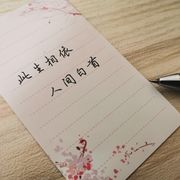 此生相依
人间白首